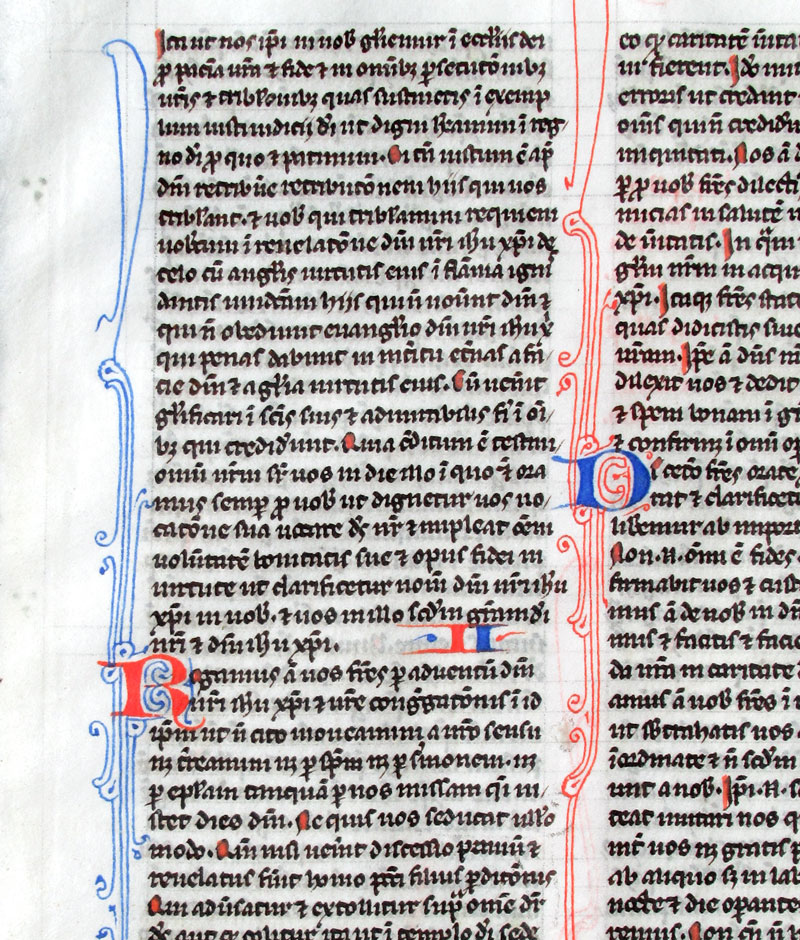 Ita ut nos ip̄i in uob̄ gl̄iemur ī eccl̄iis dei
p̄ pacīa ur̄a ⁊ fide ⁊ in om̄ibꝫ ꝑsecutōnibꝫ
ur̄is ⁊ tribl̄onibꝫ quas sustinetis ī exemp
lum iusti iudicij dī ut digni hēamini ī reg
no dī ꝓ quo ⁊ patimini. Si tn̄ iustum ē ap̄
dm̄ retribūe retributōnem hiis qui uos
tribl̄ant. ⁊ uob̄ qui tribl̄amini requiem
nobcum ī reuelatōne dn̄i nr̄i ih̄u xp̄i de
celo cū angl̄is uirtutis eius ī flām̄a ignī
dantis uindc̄am hijs qui n̄ nouūt dm̄ ⁊
qui n̄ obediunt euangl̄io dn̄i nr̄i ih̄u x̄
qui penas dabunt in int̄itu et̄nas a fa
cie dn̄i ⁊ a gl̄ia uirtutis eius. Cū uen̄it
gl̄ificari ī sc̄is suis ⁊ admirabilis fi̓ ī oī
bꝫ qui credid̓unt. Quia c̄ditum ē testim
onium nr̄m sr̄ uos in die illo ī quo ⁊ ora
mus semꝑ ꝓ uob̄ ut dignetur uos uo
catōne sua uocare d̄s nr̄ ⁊ impleat om̄em
uolūtatē bonitatis sue ⁊ opus fidei in
uirtute ut clarificetur nom̄ dn̄i nr̄i ih̄u
xp̄i in uob̄. ⁊ uos in illo scd̄m gr̄am dī
nr̄i ⁊ dn̄i ih̄u xp̄i. II
Rogamus ā uos fr̄es ꝑ aduentū dn̄i
nr̄i ih̄u xp̄i ⁊ nr̄e cong̓gatōnis ī id
ip̄m ut n̄ cito moueamini a ur̄o sensu
nꝫ t̄reamini nꝫ ꝑ sp̄m nꝫ ꝑ s̓monem. nꝫ
ꝑ epl̄am tanquā ꝑ nos missam q̄i in
stet dies dn̄i. Ne quis uos seducat ullo
modo. Qm̄ nisi uen̄it discessio primū ⁊
reuelatus fūit homo pcc̄i filius ꝑditōnis
Qui adūsatur ⁊ extollitur sup̄ om̄e dr̄
ds̄ aut qd̄ colitur ita ut ī templo dī sede
eo qd̄ caritatē ūita
ui fierent. Ido mi
erroris ut credant
om̄s qui n̄ credid̓u
iniquitati. Nos ā d
ꝑ uob̄ fr̄es dilecti
micias in salutē
de ūitatis. In q̄m
gl̄ia nr̄m in acqu
xp̄i. Itaqꝫ fr̄es state
quas didicistis siue
nr̄am. Ip̄e ā dn̄s nr̄
dilexit nos ⁊ dedit
⁊ spem bonam ī g
⁊ confirmꝫ ī om̄i op
De ceto fr̄es orate
rat ⁊ clarificet
liberemur ab impor
Non .n. om̄i ē fides
firmabit uos ⁊ cust
imus ā de uob̄ in dn̄
mus ⁊ facitis ⁊ facie
da nr̄a in caritate
amus ā uob̄ fr̄es ī
ut sb̄trahatis uos
īordinate ⁊ n̄ scd̄m
unt a nob̄. Ip̄i .n. s
teat imitari nos q
int̄ uos nꝫ gratis p
ab aliquo sꝫ in lab
nocte ⁊ die operante
remus. Non q̄i n̄